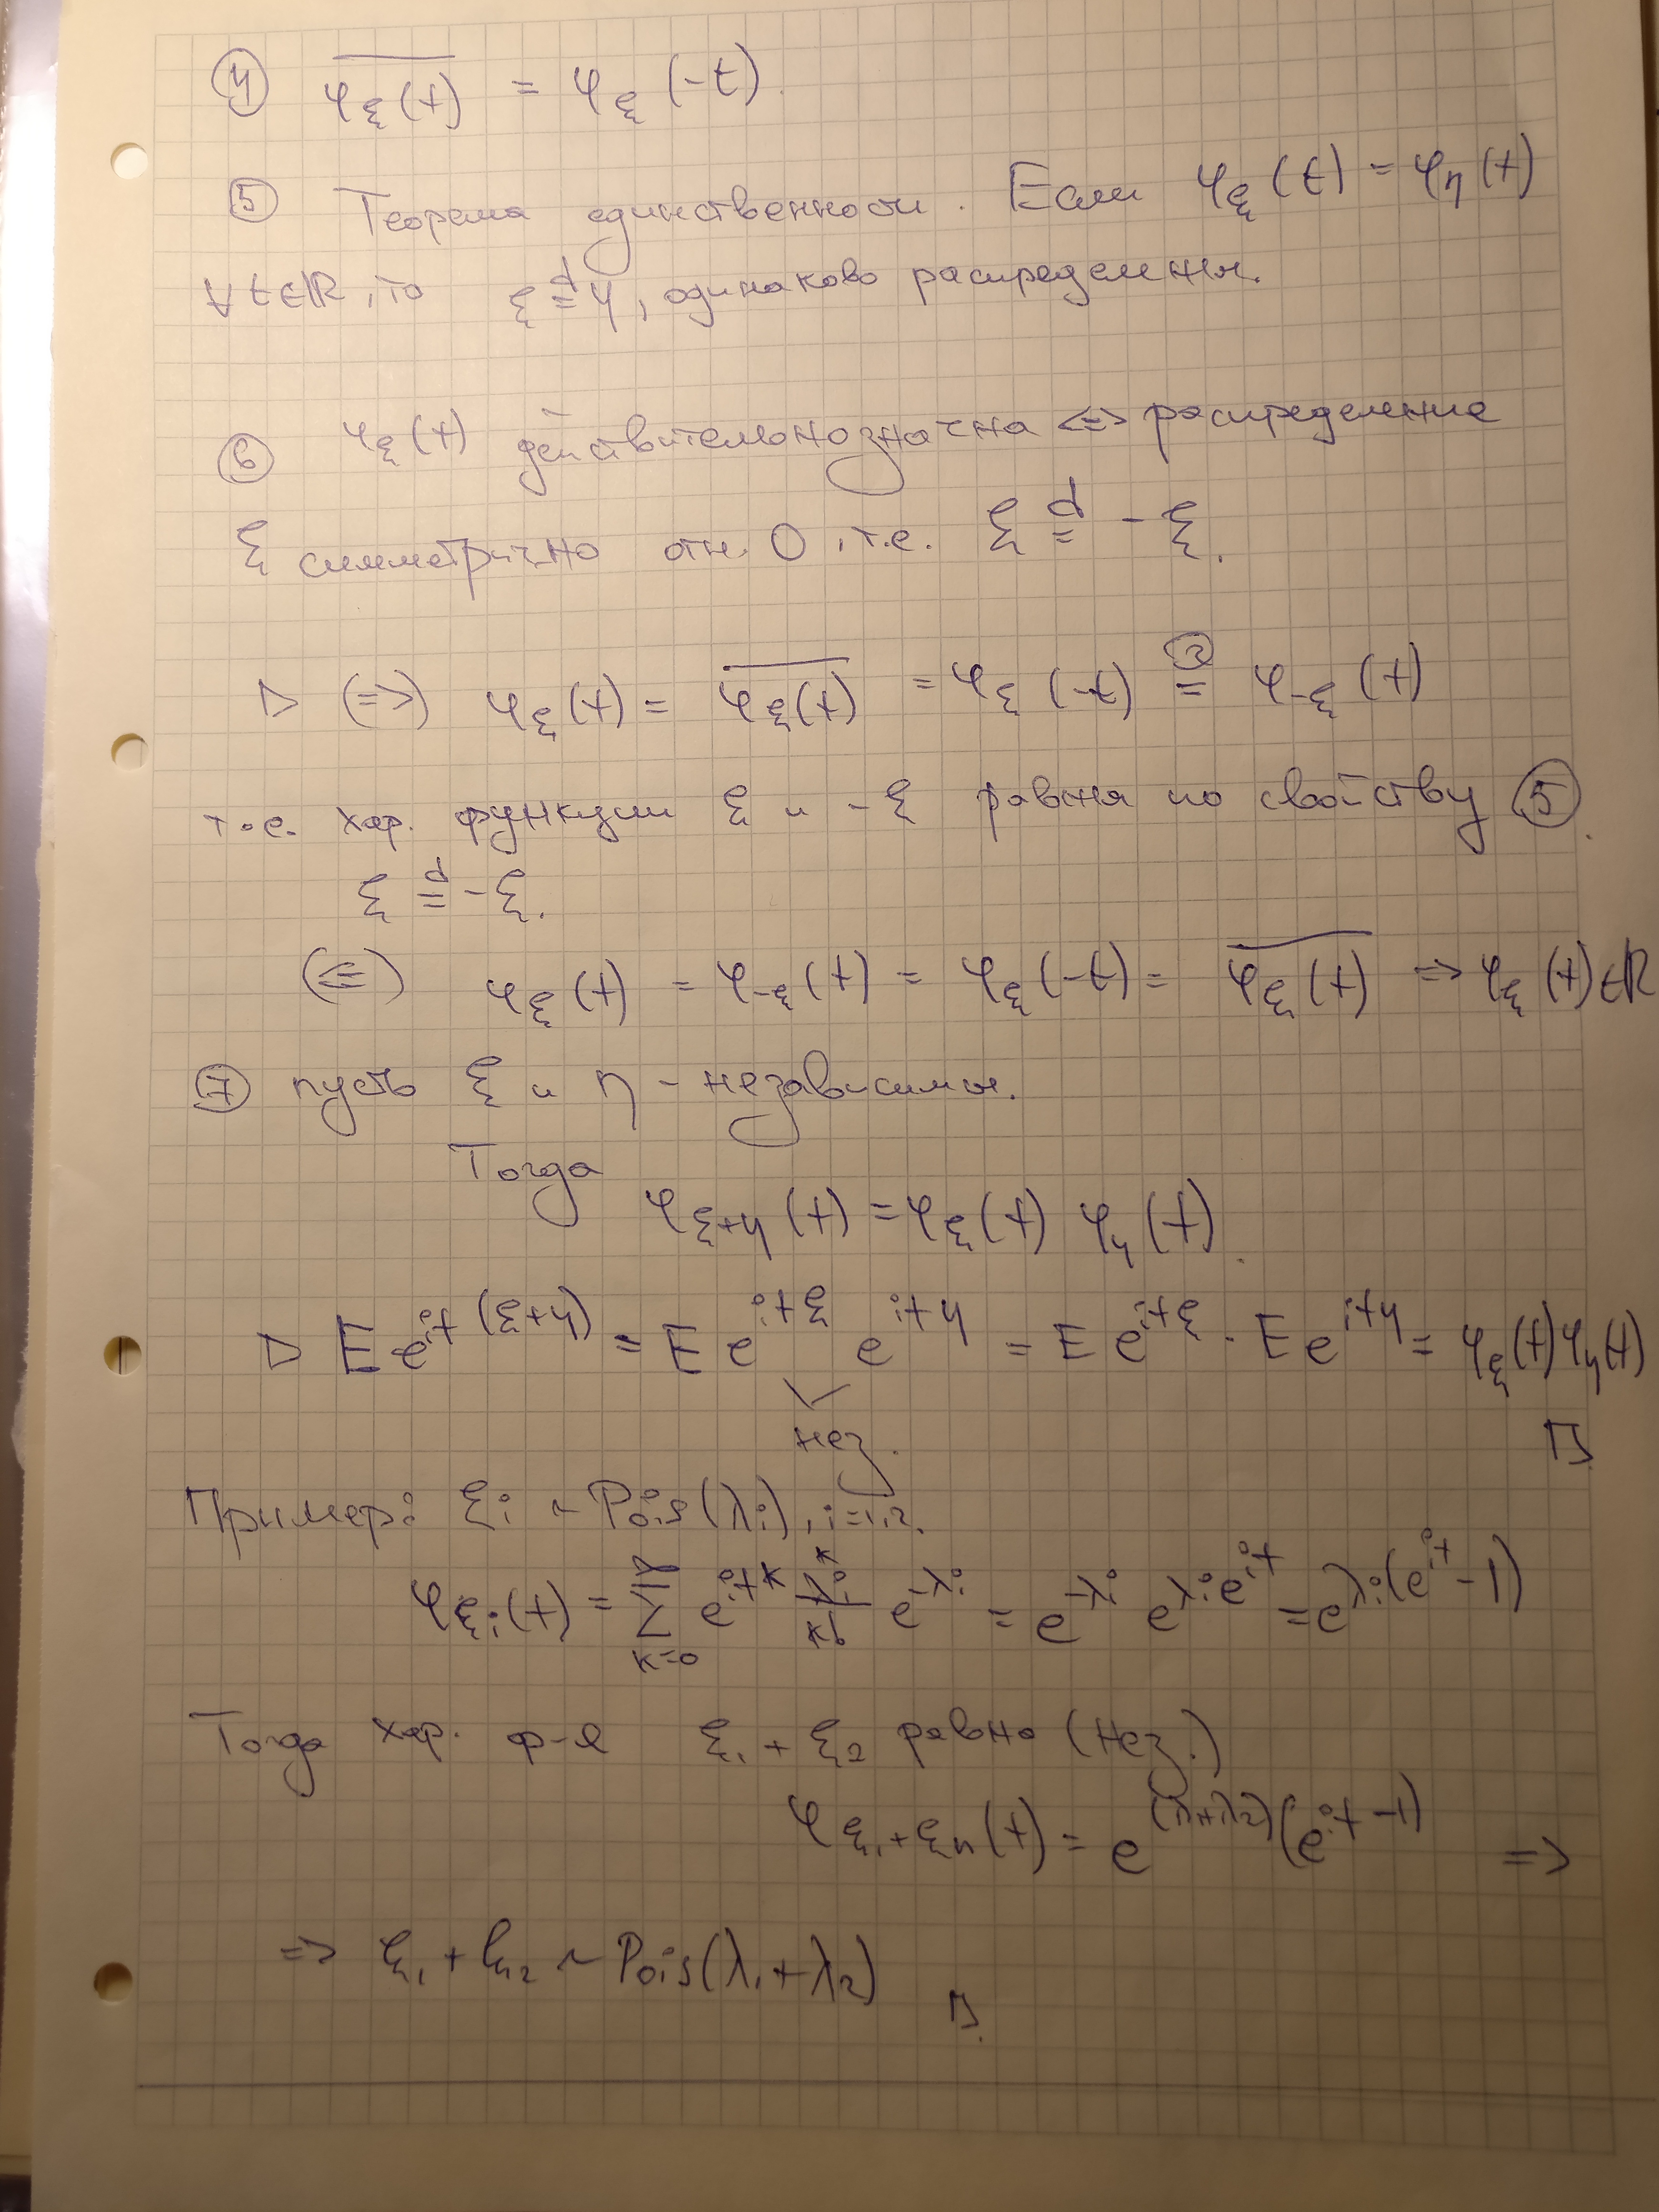 ④ \overline{φ_ξ(t)} = φ_ξ(-t).
⑤ Теорема единственности. Если φ_ξ(t) = φ_η(t)
∀ t ∈ ℝ, то ξ \overset{d}{=} η, одинаково распределены.
⑥ φ_ξ(t) действительнозначна <=> распределение
ξ симметрично отн. 0, т.е. ξ \overset{d}{=} -ξ.
▷ (=>) φ_ξ(t) = \overline{φ_ξ(t)} = φ_ξ(-t) \overset{②}{=} φ_{-ξ}(t)
т.е. хар. функции ξ и -ξ равны по свойству ⑤.
ξ \overset{d}{=} -ξ.
(<=) φ_ξ(t) = φ_{-ξ}(t) = φ_ξ(-t) = \overline{φ_ξ(t)} => φ_ξ(t) ∈ ℝ
⑦ пусть ξ и η - независимы.
Тогда
φ_{ξ+η}(t) = φ_ξ(t) φ_η(t).
▷ E e^{it(ξ+η)} = E e^{itξ} e^{itη} = E e^{itξ} · E e^{itη} = φ_ξ(t) φ_η(t)
нез.
Пример: ξ_i ~ Pois(λ_i), i=1,2.
φ_{ξ_i}(t) = \sum_{k=0}^{∞} e^{itk} \frac{λ_i^k}{k!} e^{-λ_i} = e^{-λ_i} e^{λ_i e^{it}} = e^{λ_i(e^{it}-1)}
Тогда хар. ф-я ξ_1 + ξ_2 равна (нез.)
φ_{ξ_1+ξ_n}(t) = e^{(λ_1+λ_2)(e^{it}-1)} =>
=> ξ_1 + ξ_2 ~ Pois(λ_1+λ_2)